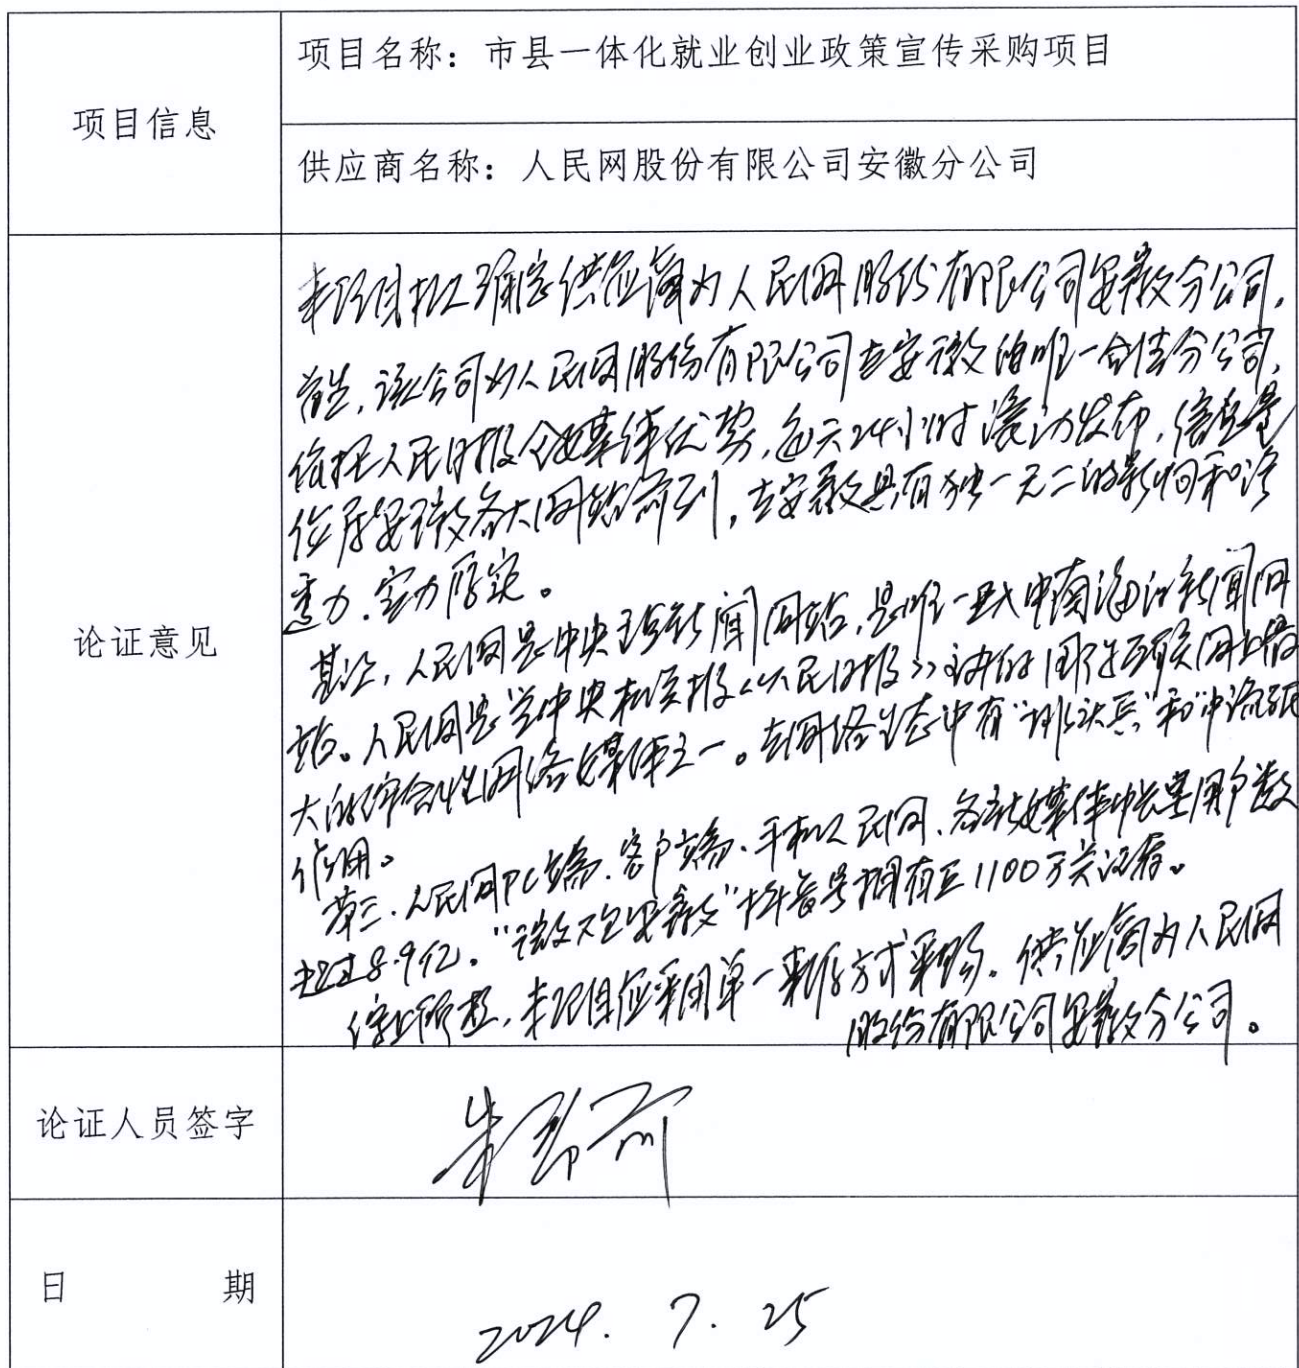 项目信息
项目名称：市县一体化就业创业政策宣传采购项目
供应商名称：人民网股份有限公司安徽分公司
论证意见
本项目拟确定供应商为人民网股份有限公司安徽分公司。
首先，该公司为人民网股份有限公司在安徽的唯一合法分公司，
依托人民日报全媒体优势，每天24小时滚动发布，信息量
位居安徽各大网站前列，在安徽具有独一无二的影响和渗
透力，实力厚实。
其次，人民网是中央重点新闻网站，是唯一进入中南海的新闻网
站。人民网是党中央机关报《人民日报》主办的国际互联网上最
大的综合性网络媒体之一。在网络生态中有"排头兵"和"中流砥柱"
作用。
第三，人民网PC端、客户端、手机人民网、各新媒体中长尾用户数
超过8.9亿。"微文安徽"抖音号拥有近1100万关注者。
综上所述，本项目应采用单一来源方式采购，供应商为人民网
股份有限公司安徽分公司。
论证人员签字
日 期
2024. 7. 25